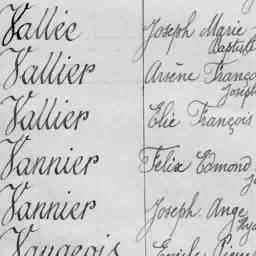 Vallée Joseph Marie
Baptiste
Vallier Arsène Franço
Joseph
Vallier Elie François
Vannier Felix Edmond
Vannier Joseph Ange
Vaugeois Emile Pierre